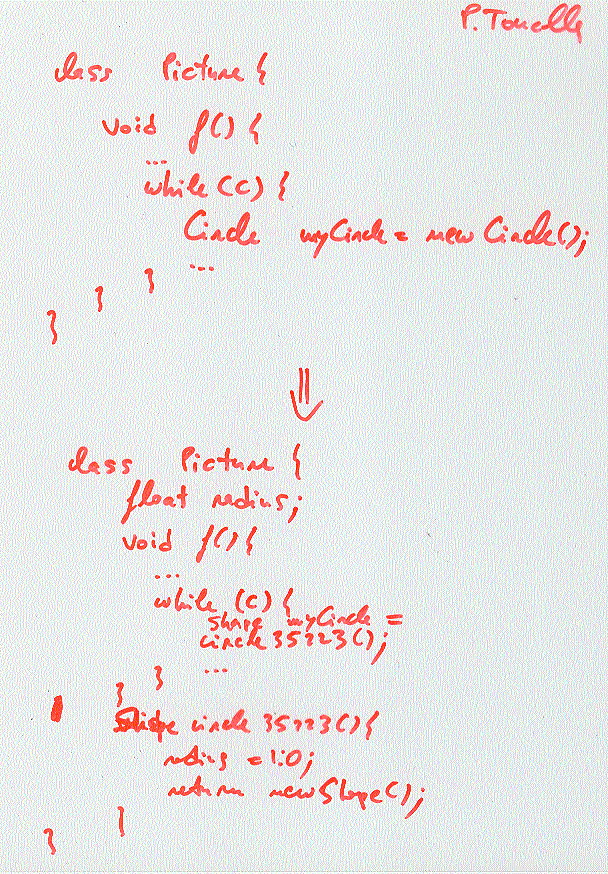 class Picture {
void f() {
...
while (C) {
Circle myCircle = new Circle();
...
}
}
}
⇓
class Picture {
float radius;
void f() {
...
while (C) {
Shape myCircle =
circle35323();
...
}
}
Shape circle35323() {
radius = 1.0;
return new Shape();
}
}